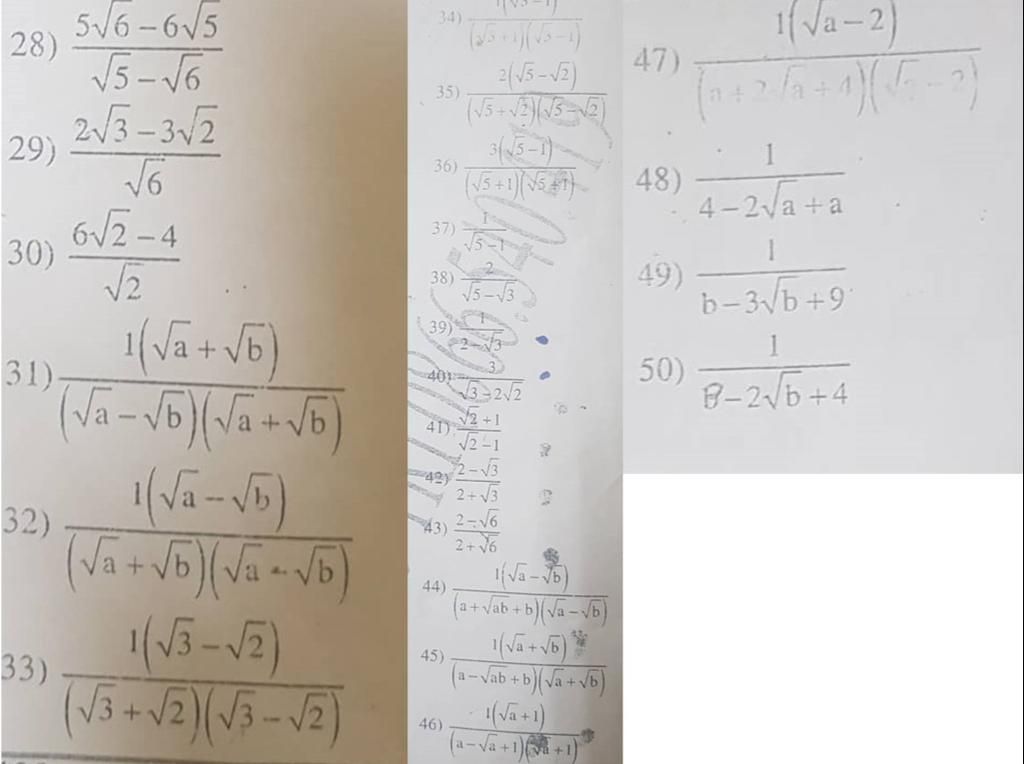 28) (5√6 − 6√5)/(√5 − √6)
29) (2√3 − 3√2)/√6
30) (6√2 − 4)/√2
31) 1(√a + √b)/(√a − √b)(√a + √b)
32) 1(√a − √b)/(√a + √b)(√a − √b)
33) 1(√3 − √2)/(√3 + √2)(√3 − √2)
34) 1(√3 − 1)/(√5 + 1)(√5 − 1)
35) 2(√5 − √2)/(√5 + √2)(√5 − √2)
36) 3(√5 − 1)/(√5 + 1)(√5 + 1)
37) 1/(√5 − 1)
38) 2/(√5 − √3)
39) 1/(2 − √3)
40) 3/(√3 − 2√2)
41) (√2 + 1)/(√2 − 1)
42) (2 − √3)/(2 + √3)
43) (2 − √6)/(2 + √6)
44) 1(√a − √b)/(a + √ab + b)(√a − √b)
45) 1(√a + √b)/(a − √ab + b)(√a + √b)
46) 1(√a + 1)/(a − √a + 1)(√a + 1)
47) 1(√a − 2)/(a + 2√a + 4)(√a − 2)
48) 1/(4 − 2√a + a)
49) 1/(b − 3√b + 9)
50) 1/(B − 2√b + 4)